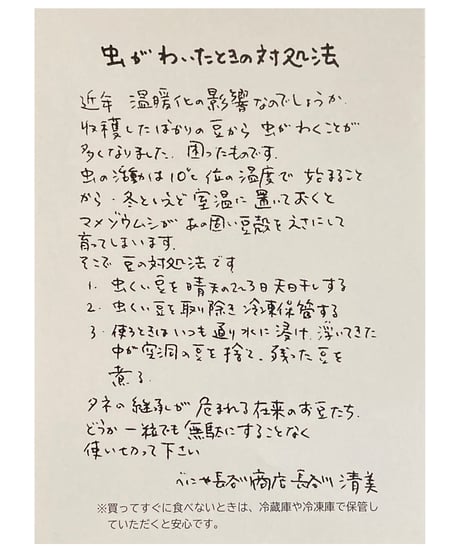 虫がわいたときの対処法
近年 温暖化の影響なのでしょうか
収穫したばかりの豆から 虫がわくことが
多くなりました。困ったものです。
虫の活動は10℃位の温度で 始まること
から、冬といえど 室温に置いておくと
マメゾウムシが あの固い豆殻をえさにして
育ってしまいます。
そこで 豆の対処法です
1. 虫くい豆を晴天の2〜3日天日干しする
2. 虫くい豆を取り除き 冷凍保管する
3. 使うときはいつも通り水に浸け、浮いてきた
中が空洞の豆を捨て、残った豆を
煮る。
タネの継承が 危まれる在来のお豆たち、
どうか 一粒でも 無駄にすることなく
使い切って下さい
べにや長谷川商店 長谷川 清美
※買ってすぐに食べないときは、冷蔵庫や冷凍庫で保管し
ていただくと安心です。